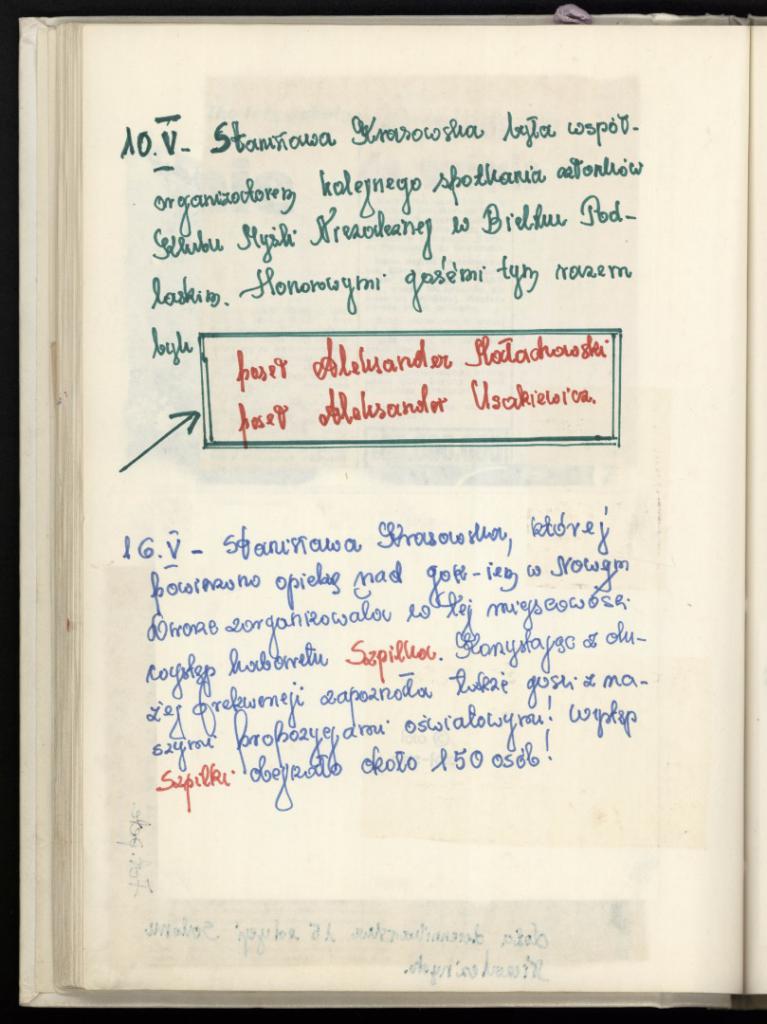 10.V - Stanisława Krasowska była współ-
organizatorem kolejnego spotkania członków
Klubu Myśli Niezależnej w Bielsku Pod-
laskim. Honorowymi gośćmi tym razem
byli
poseł Aleksander Małachowski
poseł Aleksander Usakiewicz.
16.V - Stanisława Krasowska, której
powierzono opiekę nad gok-iem w Nowym
Dworze zorganizowała w tej miejscowości
występ kabaretu Szpilka. Korzystając z du-
żej frekwencji zapoznała także gości z na-
szymi propozycjami oświatowymi! Występ
Szpilki obejrzało około 150 osób!